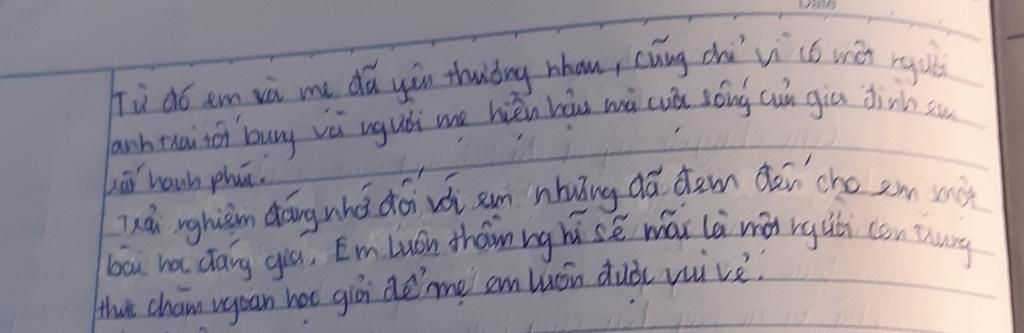 Từ đó em và mẹ đã yêu thương nhau, cũng chỉ vì có một người
anh trai tốt bụng và người mẹ hiền hậu mà cuộc sống của gia đình em
rất hạnh phúc.
Trải nghiệm đáng nhớ đối với em nhưng đã đem đến cho em một
bài học đáng giá. Em luôn thầm nghĩ sẽ mãi là một người con trung
thực chăm ngoan học giỏi để mẹ em luôn được vui vẻ.